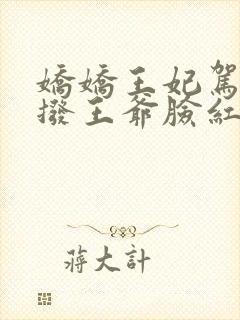 嬌嬌王妃駕
撥王爺臉紅
蔣大計